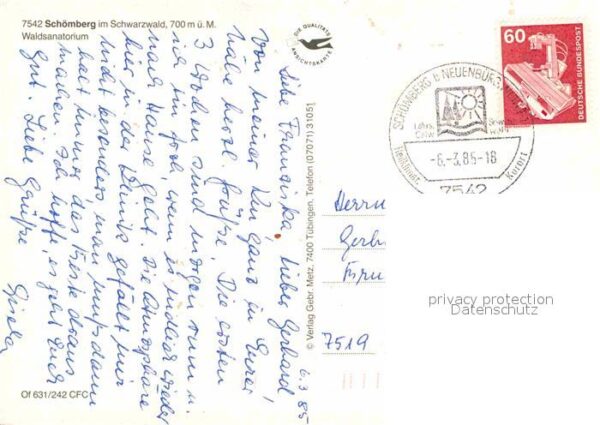 7542 Schömberg im Schwarzwald, 700 m ü. M.
Waldsanatorium
DIE QUALITÄTS
ANSICHTSKARTE
60
DEUTSCHE BUNDESPOST
SCHÖMBERG b NEUENBÜRG
Heilklimat. Kurort
-6.-3.85-18
7542
6.3.85
Liebe Franziska, lieber Gerhard,
von meiner Kur ganz in Eurer
Nähe herzl. Grüße. Die ersten
3 Wochen sind morgen rum u.
ich bin froh, wenn es endlich wieder
nach Hause geht. Die Atmosphäre
hier in der Klinik gefällt mir
nicht besonders, man muß dann
halt immer das Beste draus
machen. Ich hoffe, es geht Euch
gut. Liebe Grüße
Gisela
© Verlag Gebr. Metz, 7400 Tübingen, Telefon (07071) 31051
Herrn
Gerh
7519
privacy protection
Datenschutz
Of 631/242 CFC